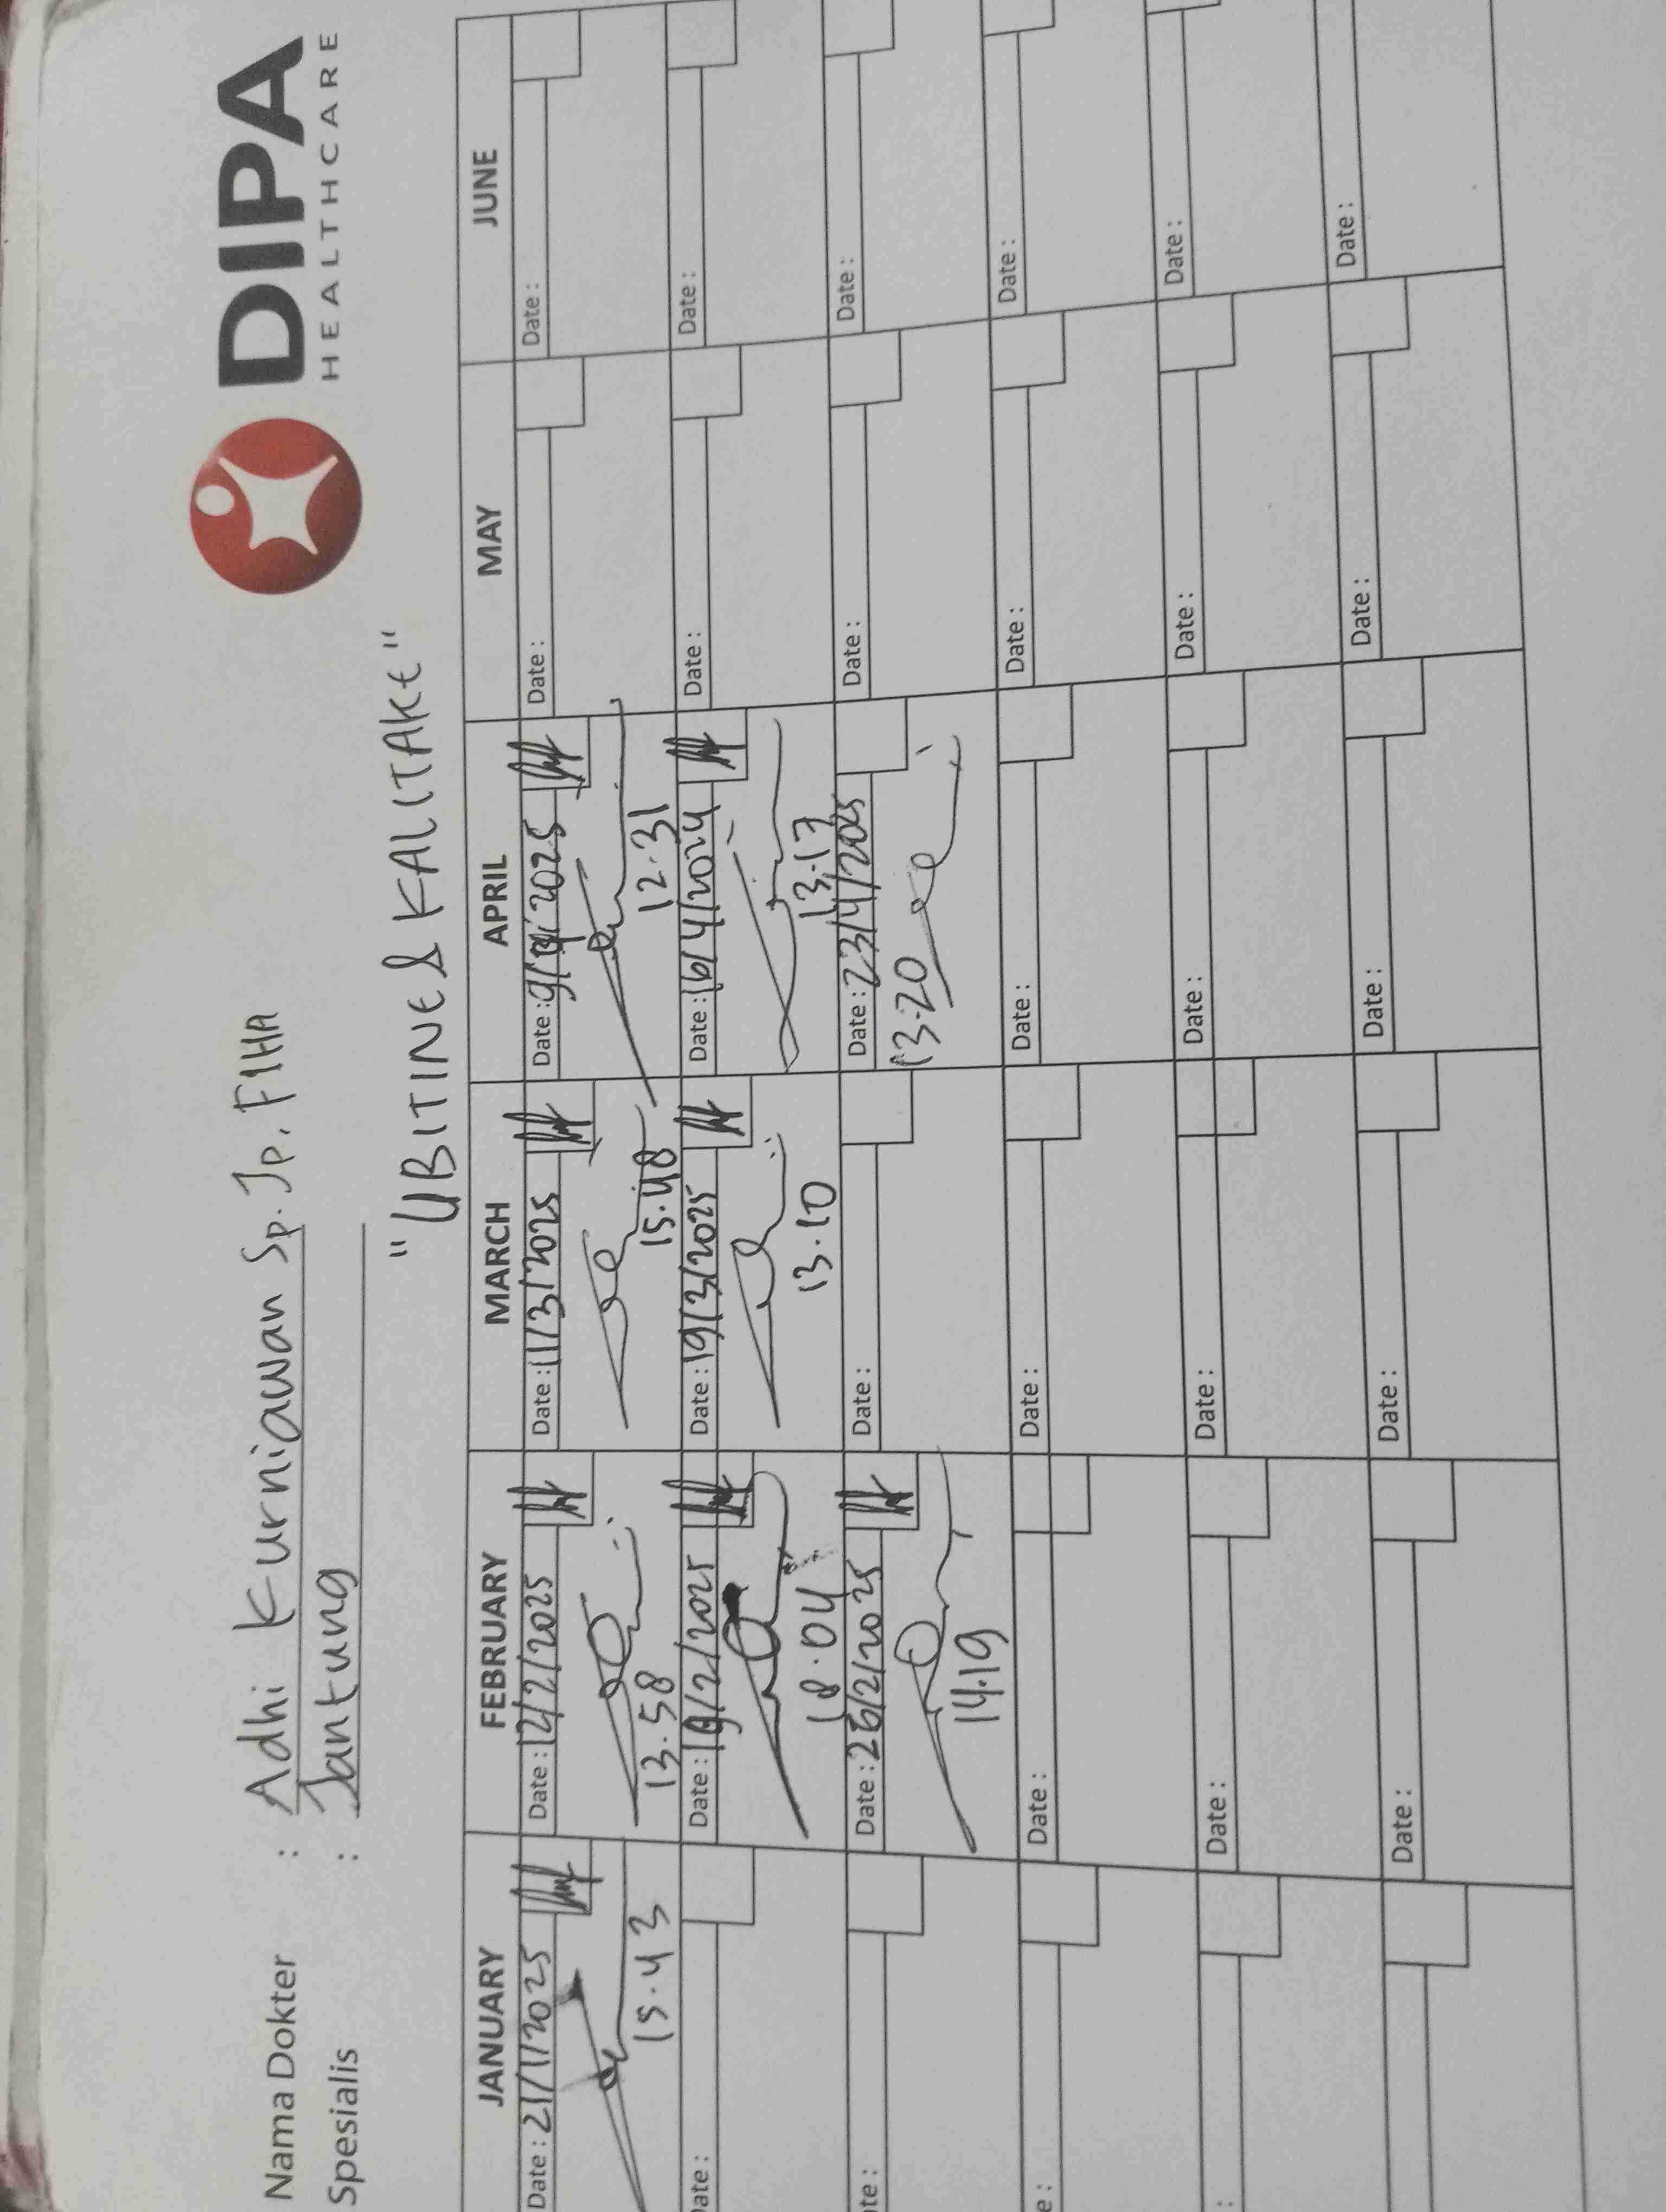 DIPA
HEALTHCARE
Nama Dokter : Adhi Kurniawan Sp. Jp. FIHA
Spesialis : Jantung
"UBITINE & KALITAKE"
JANUARY FEBRUARY MARCH APRIL MAY JUNE
Date : 21/1/2025 Date : 12/2/2025 Date : 11/3/2025 Date : 9/4/2025 Date : Date :
15.43 13.58 15.48 12.31
Date : Date : 19/2/2025 Date : 19/3/2025 Date : 16/4/2024 Date : Date :
18.04 13.10 13.17
Date : Date : 26/2/2025 Date : Date : 23/4/2025 Date : Date :
14.19 13.20
Date : Date : Date : Date : Date :
Date : Date : Date : Date : Date :
Date : Date : Date : Date : Date :